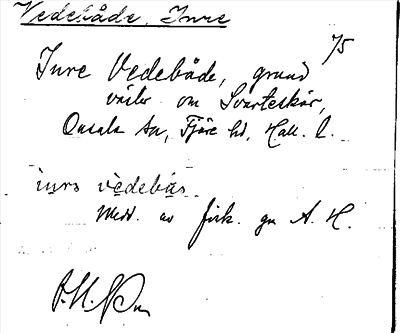 Vedebåde, Inre
75
Inre Vedebåde, grund
väster om Svarteskär,
Onsala sn, Fjäre hd, Hall. l.
inrə vedəbås
Medd. av fisk. gm A. H.